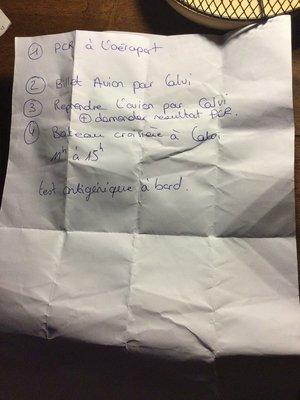 ① PCR à l'aéroport
② Billet Avion pour Calvi
③ Reprendre l'avion pour Calvi
⊕ demander resultat PCR.
④ Bateau croisière à Calvi
11h à 15h
test antigénique à bord.